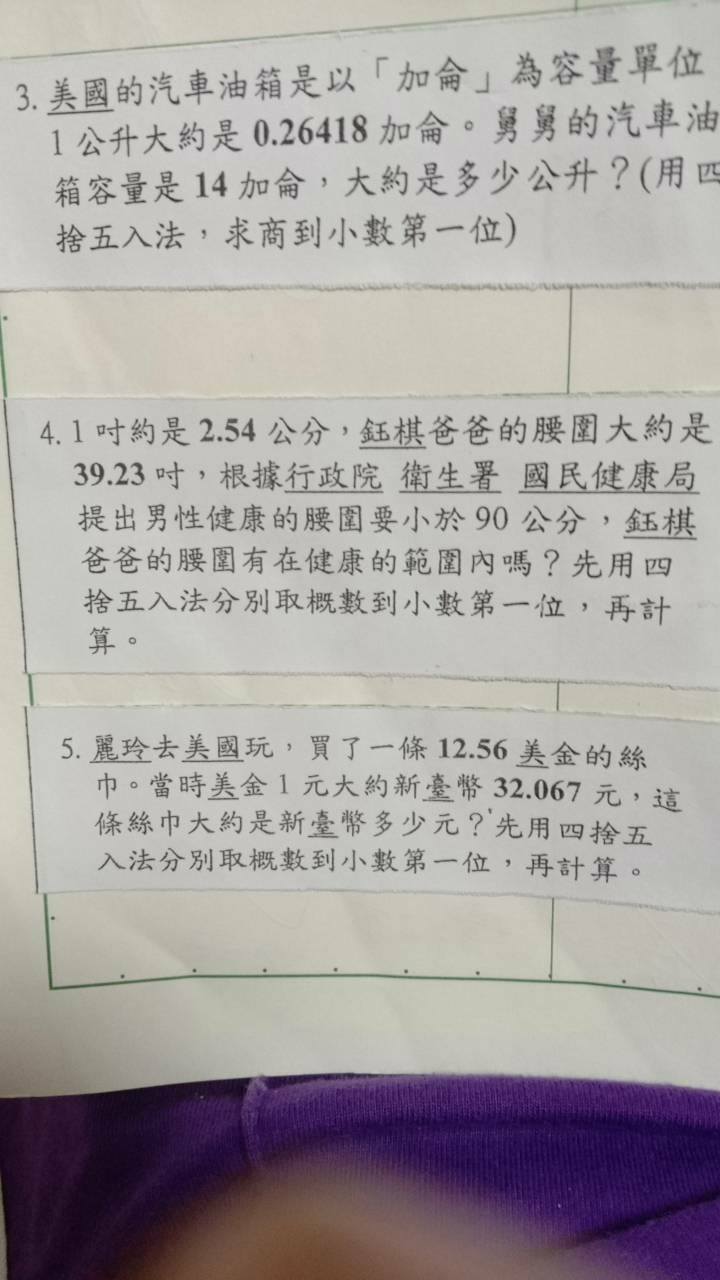 3. 美國的汽車油箱是以「加侖」為容量單位
1 公升大約是 0.26418 加侖。舅舅的汽車油
箱容量是 14 加侖,大約是多少公升?(用四
捨五入法,求商到小數第一位)
4. 1 吋約是 2.54 公分,鈺棋爸爸的腰圍大約是
39.23 吋,根據行政院 衛生署 國民健康局
提出男性健康的腰圍要小於 90 公分,鈺棋
爸爸的腰圍有在健康的範圍內嗎?先用四
捨五入法分別取概數到小數第一位,再計
算。
5. 麗玲去美國玩,買了一條 12.56 美金的絲
巾。當時美金 1 元大約新臺幣 32.067 元,這
條絲巾大約是新臺幣多少元?先用四捨五
入法分別取概數到小數第一位,再計算。